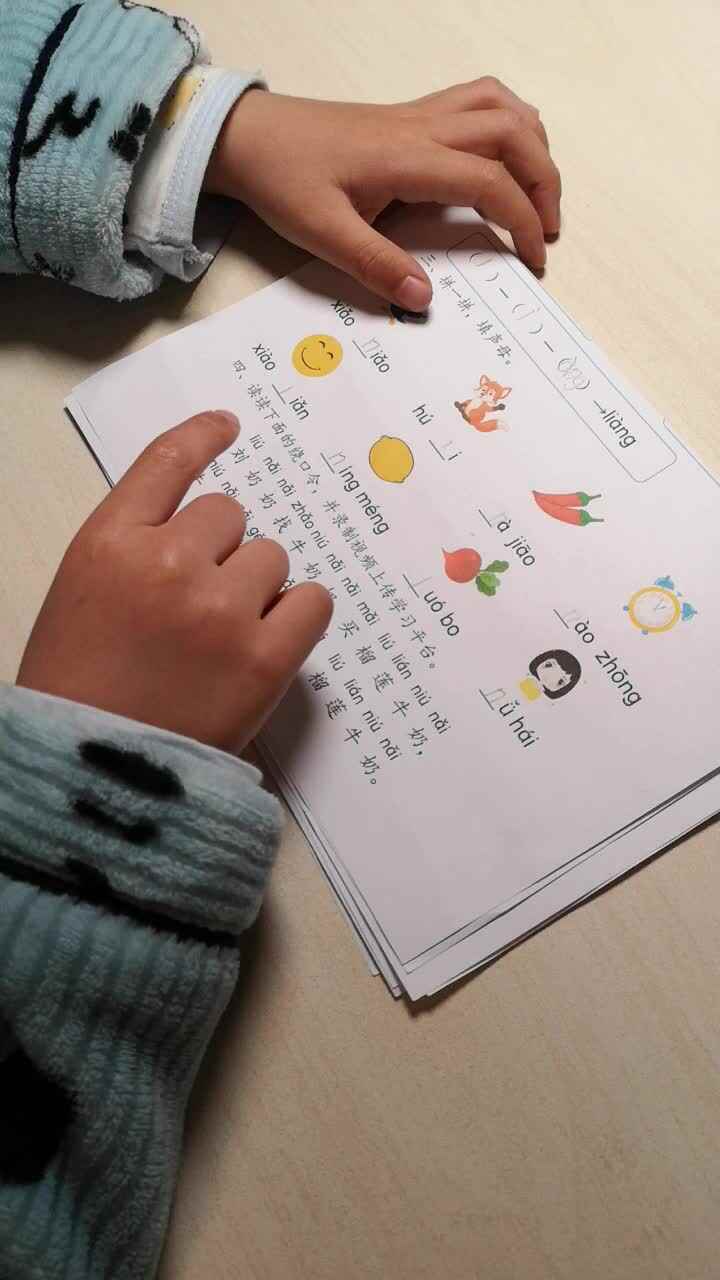 ( l ) — ( i ) — (      ) →liàng
三、拼一拼，填声母。
xiǎo n iǎo
hú l i
l à jiāo
n ào zhōng
xiào l iǎn
n íng méng
l uó bo
n ǚ hái
四、读读下面的绕口令，并录制视频上传学习平台。
liú nǎi nǎi zhǎo niú nǎi nǎi mǎi liú lián niú nǎi
刘 奶 奶 找 牛 奶 奶 买 榴 莲 牛 奶，
niú nǎi liú lián niú nǎi
榴 莲 牛 奶。